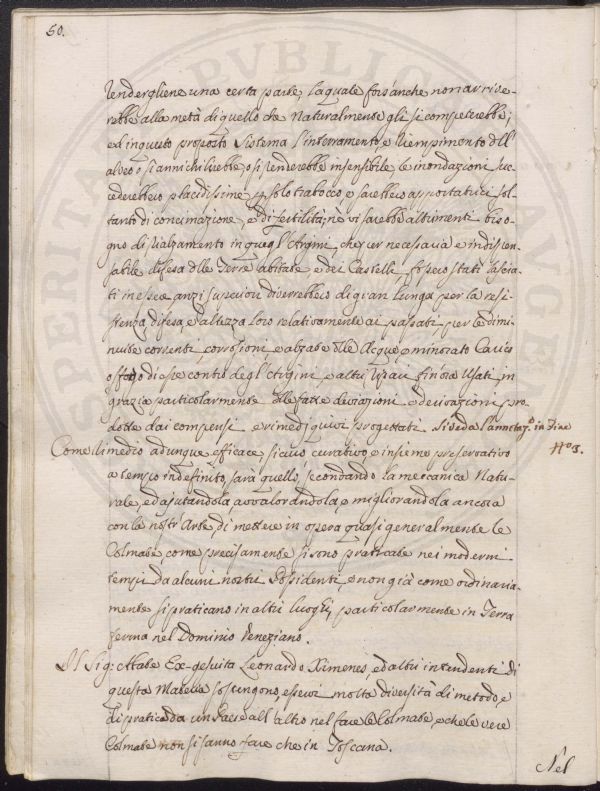 50.
rendergliene una certa parte, la quale fors'anche non arrive-
rebbe alla metà di quello che naturalmente gli si competerebbe;
ed in questo proposto Sistema l'interramento, e riempimento dell'
alveo o s'annichilirebbe, o si renderebbe insensibile, le inondazioni suc-
cederebbero placidissime p solo trabocco, e sarebbero apportatrici sol-
tanto di concimazione, e di fertilità; nè vi sarebbe altrimenti biso-
gno di rialzamento in quegl'Argini, che per necessaria e indispen-
sabile difesa delle Terre abitate, e dei Castelli, fossero stati lascia-
ti in essere, anzi superiori diverrebbero di gran lunga per la resi-
stenza, difesa, ed altezza loro relativamente ai passati, per le dimi-
nuite correnti, corrosioni, e alzate delle Acque, e minorato Carico
o sfogo di esse contro degl'Argini, e altri ripari fin'ora usati, in
grazia particolarmente delle fatte deviazioni, e derivazioni pro-
dotte dai compensi, e rimedj quivi progettati. Si veda l'annotaz.e in fine
N.o 3.
Come rimedio adunque efficace, sicuro, curativo, e insieme preservativo
a tempo indefinito, sarà quello, secondando la meccanica Natu-
rale, ed ajutandola, avvalorandola, e migliorandola ancora
con la nostr'Arte, di mettere in opera quasi generalmente le
Colmate, come precisamente si sono praticate nei moderni
tempi da alcuni nostri Possidenti, e non già come ordinaria-
mente si praticano in altri luoghi, particolarmente in Terra
ferma nel Dominio Veneziano.
Il Sig: Abate Ex-gesuita Leonardo Ximenes, ed altri intendenti di
questa Materia sostengono, esservi molta diversità di metodo, e
di pratica da un Paese all'altro nel fare le Colmate, e che le vere
Colmate non si sanno fare che in Toscana.
Nel